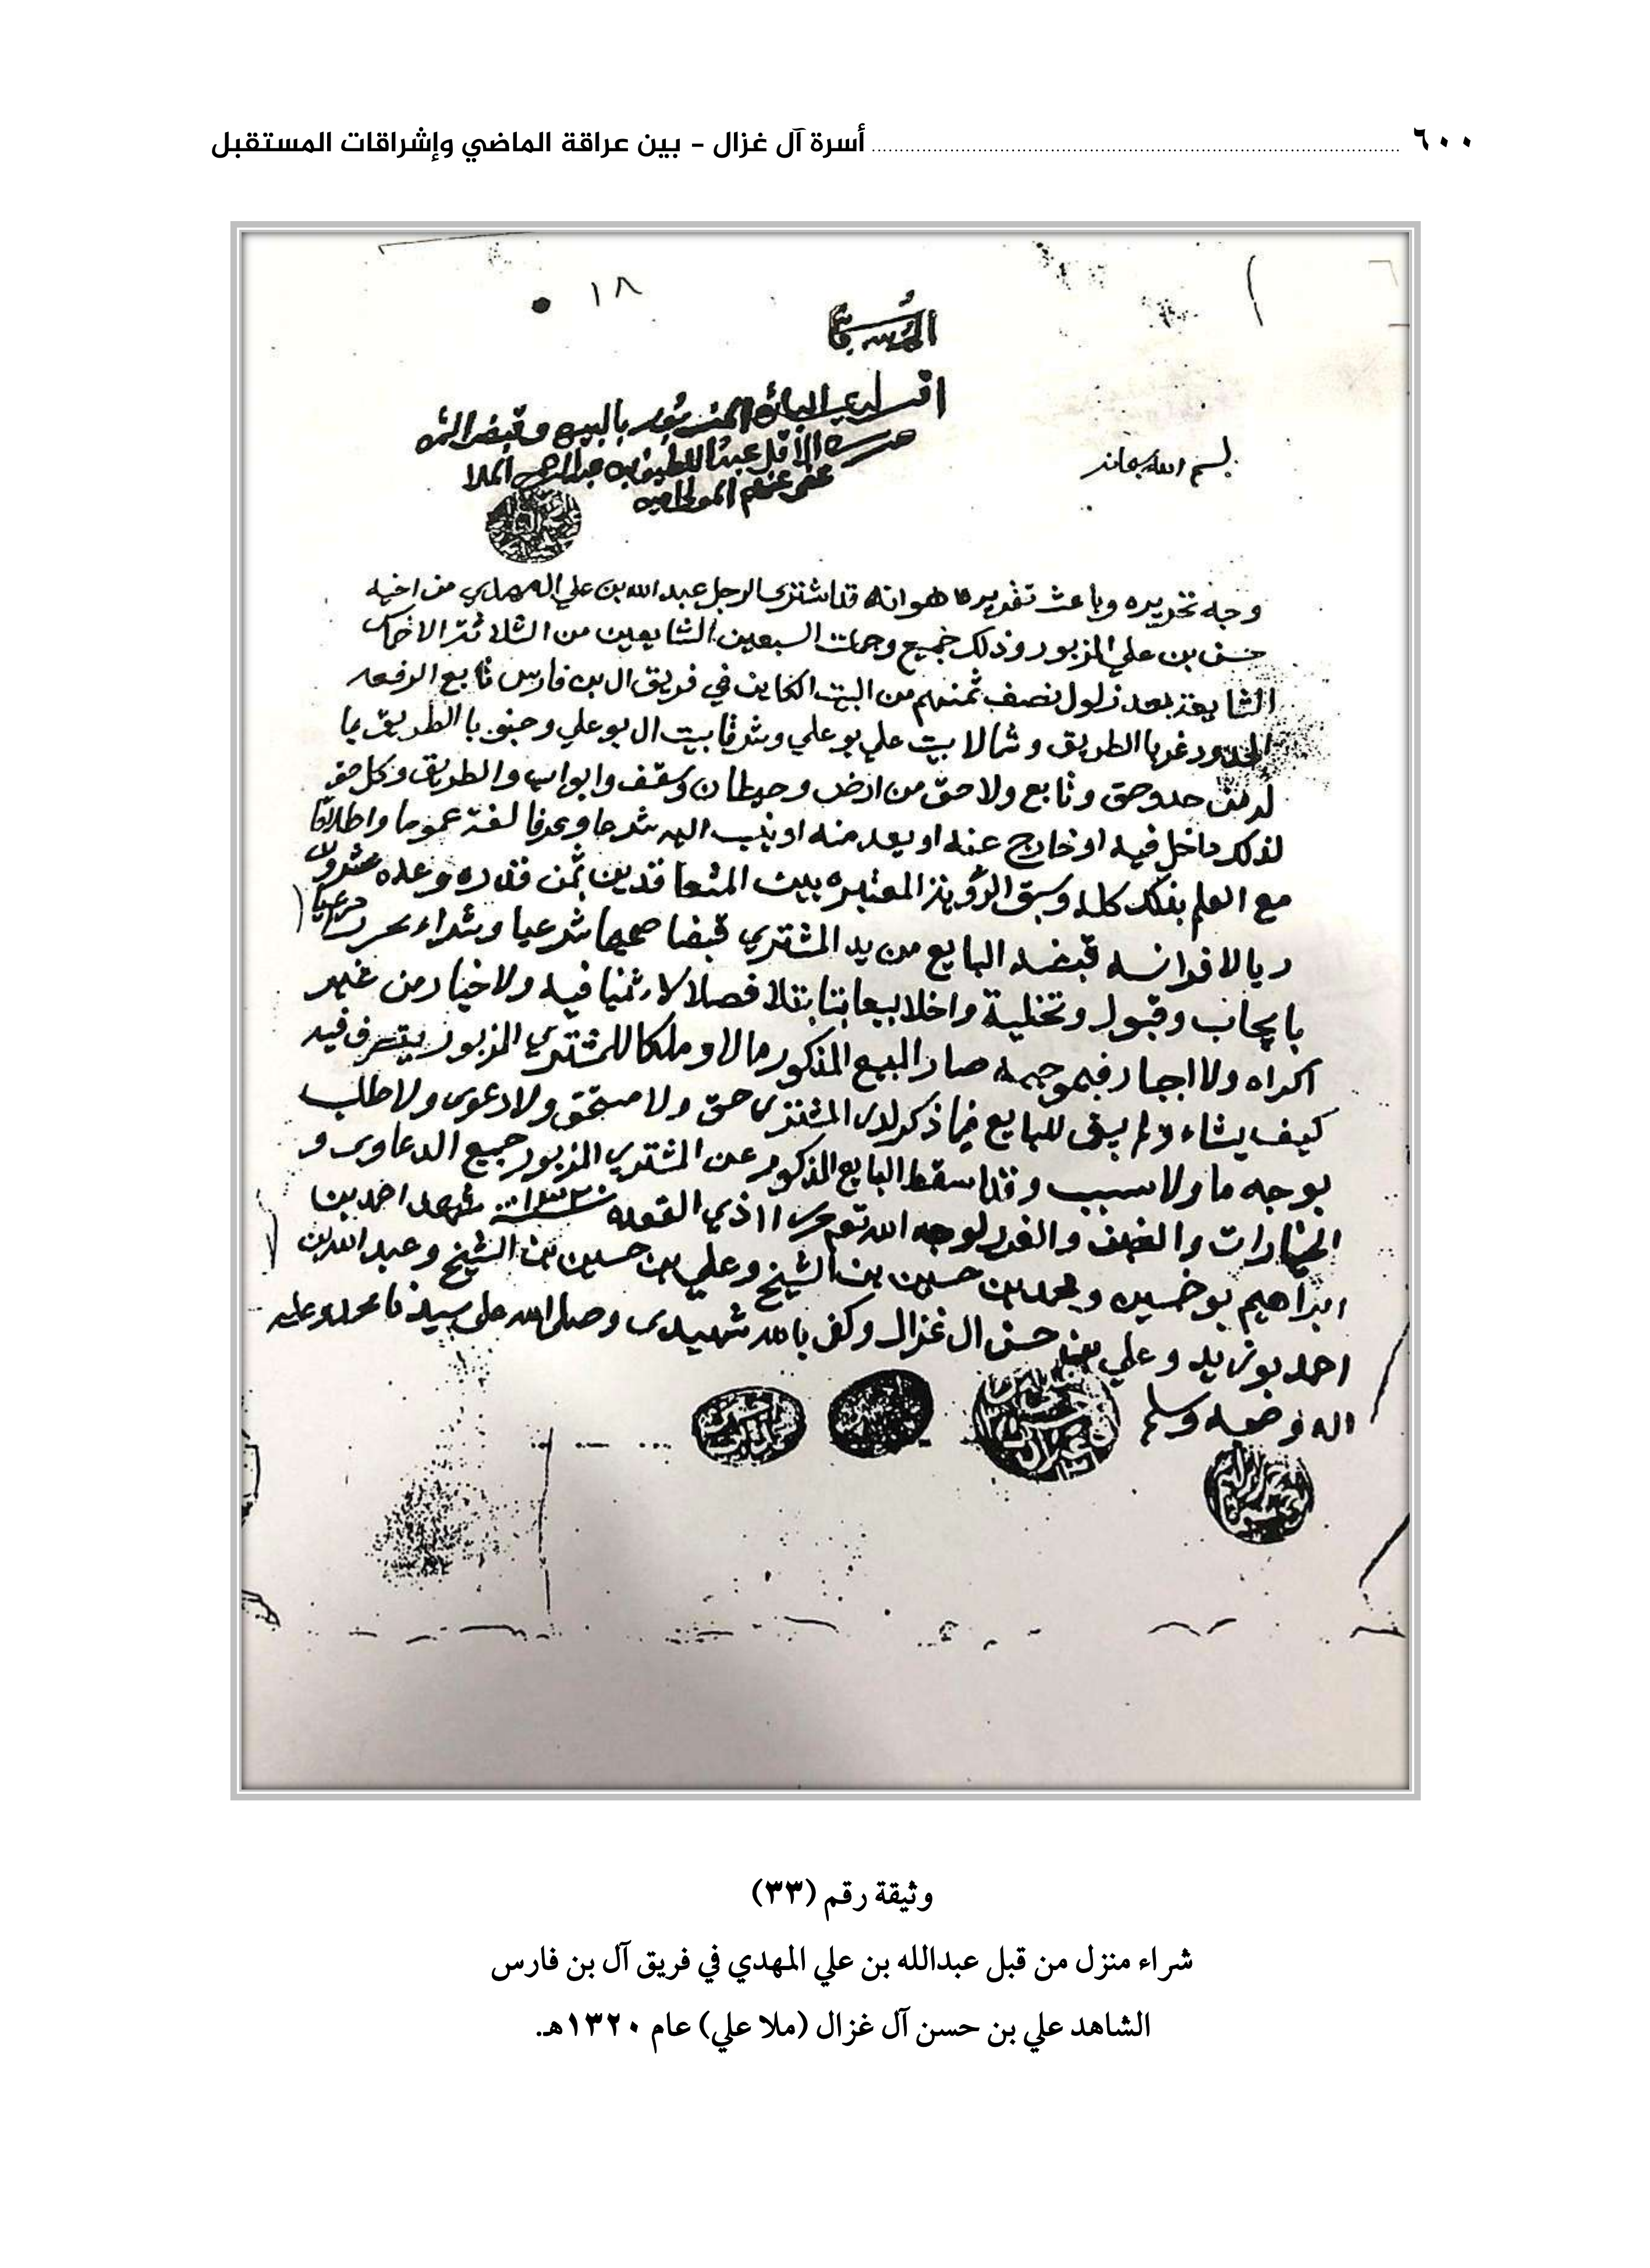 ٦٠٠ أسرة آل غزال - بين عراقة الماضي وإشراقات المستقبل
١٨
بسم الله سبحانه
اقر لدي البائع المذبور بالبيع وقبض الثمن
حرره الأقل عبد اللطيف بن عبدالرحمن الملا
عفى عنهم المولى
وجه تحريره وباعث تقريره هو انه قد اشترى الرجل عبد الله بن علي المهدي من اخيه
حسن بن علي المزبور وذلك جميع وجملة السبعين الشايعين من الثلاثة الاخماس
الشايعة بعد نزول نصف ثمنهم من البيت الكاين في فريق ال بن فارس تابع الرفعه
المحدود غربا الطريق وشمالا بيت علي بو علي وشرقا بيت ال بو علي وجنوبا الطريق بما
له من حد وحق وتابع ولاحق من ارض وحيطان وسقف وابواب والطريق وكل حق
لذلك داخل فيه او خارج عنه او يعد منه او ينسب اليه شرعا وعرفا لغة عموما واطلاقا
مع العلم بذلك كله وسبق الرؤية المعتبره بين المتعاقدين بثمن قدره وعده عشرون
ريالا فرانسه قبضه البايع من يد المشتري قبضا صحيحا شرعيا وشراء محررا مرعيا
بايجاب وقبول وتخلية واخلا بيعا بتا بتلا فصلا لا ثنيا فيه ولا خيار من غير
اكراه ولا اجبار فبموجبه صار المبيع المذكور مالا وملكا للمشتري المزبور يتصرف فيه
كيف يشاء ولم يبق للبايع فيما ذكر لدى المشترى حق ولا مستحق ولا دعوى ولا طلب
بوجه ما ولا سبب وقد اسقط البايع المذكور عن المشتري المزبور جميع الدعاوى و
الخيارات والغبن والغرر لوجه الله تع حرر ١١ ذي القعده سنة ١٣٢٠ شهد احمد بن
ابراهيم بو خمسين ومحمد بن حسين بن الشيخ وعلي بن حسين بن الشيخ وعبد الله بن
احمد بو زيد وعلي بن حسن ال غزال وكفى بالله شهيدى وصلى الله على سيدنا محمد وعلى
اله وصحبه وسلم
وثيقة رقم (٣٣)
شراء منزل من قبل عبدالله بن علي المهدي في فريق آل بن فارس
الشاهد علي بن حسن آل غزال (ملا علي) عام ١٣٢٠هـ.